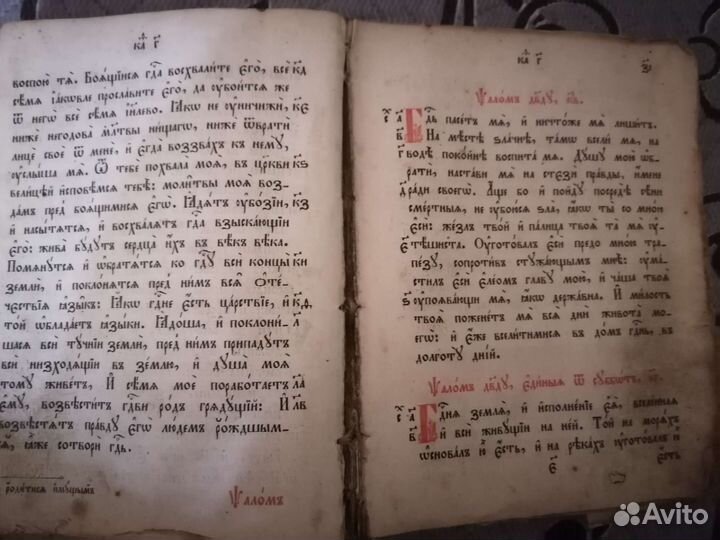 ка҃ г҃
воспою́ тѧ̀. Боѧ́щїисѧ гдⷭ҇а восхвали́те є҆го̀, всѐ к҃д
сѣ́мѧ і҆а́кѡвле просла́вите є҆го̀, да ᲂу҆бои́тсѧ же
ѿ негѡ̀ всѐ сѣ́мѧ і҆и҃лево. Ꙗ҆́кѡ не ᲂу҆ничижѝ, к҃є
нижѐ негодова̀ мл҃твы ни́щагѡ, нижѐ ѿвратѝ
лицѐ своѐ ѿ менє̀, и҆ є҆гда̀ воззва́хъ къ немꙋ̀,
ᲂу҆слы́ша мѧ̀. Ѿ тебє̀ похвала̀ моѧ̀, въ цр҃кви к҃ѕ
вели́цѣй и҆сповѣ́мсѧ тебѣ̀: моли̑твы моѧ̑ воз-
да́мъ пред̾ боѧ́щимисѧ є҆гѡ̀. Ꙗ҆дѧ́тъ ᲂу҆бо́зїи, к҃з
и҆ насы́тѧтсѧ, и҆ восхва́лѧтъ гдⷭ҇а взыска́ющїи
є҆го̀: жива̑ бꙋ́дꙋтъ сердца̀ и҆́хъ въ вѣ́къ вѣ́ка.
Помѧнꙋ́тсѧ и҆ ѡ҆братѧ́тсѧ ко гдⷭ҇ꙋ всѝ концы̀ к҃и
землѝ, и҆ поклонѧ́тсѧ пред̾ ни́мъ всѧ̑ ѻ҆те́-
чєствїѧ ꙗ҆зы̑къ: Ꙗ҆́кѡ гдⷭ҇не є҆́сть ца́рствїе, и҆ к҃ѳ
то́й ѡ҆блада́етъ ꙗ҆зы̑ки. Ꙗ҆до́ша, и҆ поклони́- л҃
шасѧ всѝ тꙋ́чнїи землѝ, пред̾ ни́мъ припадꙋ́тъ
всѝ низходѧ́щїи въ зе́млю, и҆ дꙋша̀ моѧ̀
томꙋ̀ живе́тъ, И҆ сѣ́мѧ моѐ порабо́таетъ л҃а
є҆мꙋ̀, возвѣсти́тъ гдⷭ҇ви ро́дъ грѧдꙋ́щїй: И҆ л҃в
возвѣстѧ́тъ пра́вдꙋ є҆гѡ̀ лю́демъ ро́ждшым-
ꙗ҆̀же сотворѝ гдⷭ҇ь.
роди́тисѧ и҆мꙋ́щымъ
Ѱало́мъ
ка҃ г҃
з҃
Ѱало́мъ дв҃дꙋ, к҃в.
Гдⷭ҇ь пасе́тъ мѧ̀, и҆ ничто́же мѧ̀ лиши́тъ.
в҃ На мѣ́стѣ зла́чнѣ, та́мѡ вселѝ мѧ̀, на
г҃ водѣ̀ поко́йнѣ воспита̀ мѧ̀. Дꙋ́шꙋ мою̀ ѡ҆бра-
ратѝ, наста́ви мѧ̀ на стєзѝ пра́вды, и҆́мене
д҃ ра́ди своегѡ̀. А҆́ще бо и҆ пойдꙋ̀ посредѣ̀ сѣ́ни
сме́ртныѧ, не ᲂу҆бою́сѧ ѕла̀, ꙗ҆́кѡ ты̀ со мно́ю
є҆сѝ: же́злъ тво́й и҆ па́лица твоѧ̀ та̑ мѧ̀ ᲂу҆-
є҃ тѣ́шиста. Оу҆гото́валъ є҆сѝ предо мно́ю тра-
пе́зꙋ, сопроти́въ стꙋжа́ющымъ мнѣ̀: ᲂу҆ма́-
стилъ є҆сѝ є҆ле́омъ главꙋ̀ мою̀, и҆ ча́ша твоѧ̀
ѕ҃ ᲂу҆поѧва́ющи мѧ̀, ꙗ҆́кѡ держа́вна. И҆ ми́лость
твоѧ̀ пожене́тъ мѧ̀ всѧ̑ дни̑ живота̀ мо-
егѡ̀: и҆ є҆́же всели́тимисѧ въ до́мъ гдⷭ҇нь, въ
долготꙋ̀ дні́й.
Ѱало́мъ дв҃дꙋ, є҆ди́ныѧ ѿ сꙋббѡ́тъ, к҃г.
Гдⷭ҇нѧ землѧ̀, и҆ и҆сполне́нїе є҆ѧ̀, вселе́ннаѧ
в҃ и҆ всѝ живꙋ́щїи на не́й. То́й на морѧ́хъ
ѡ҆снова́лъ ю҆̀ є҆́сть, и҆ на рѣка́хъ ᲂу҆гото́валъ ю҆̀
є҃ є҆́сть
Avito